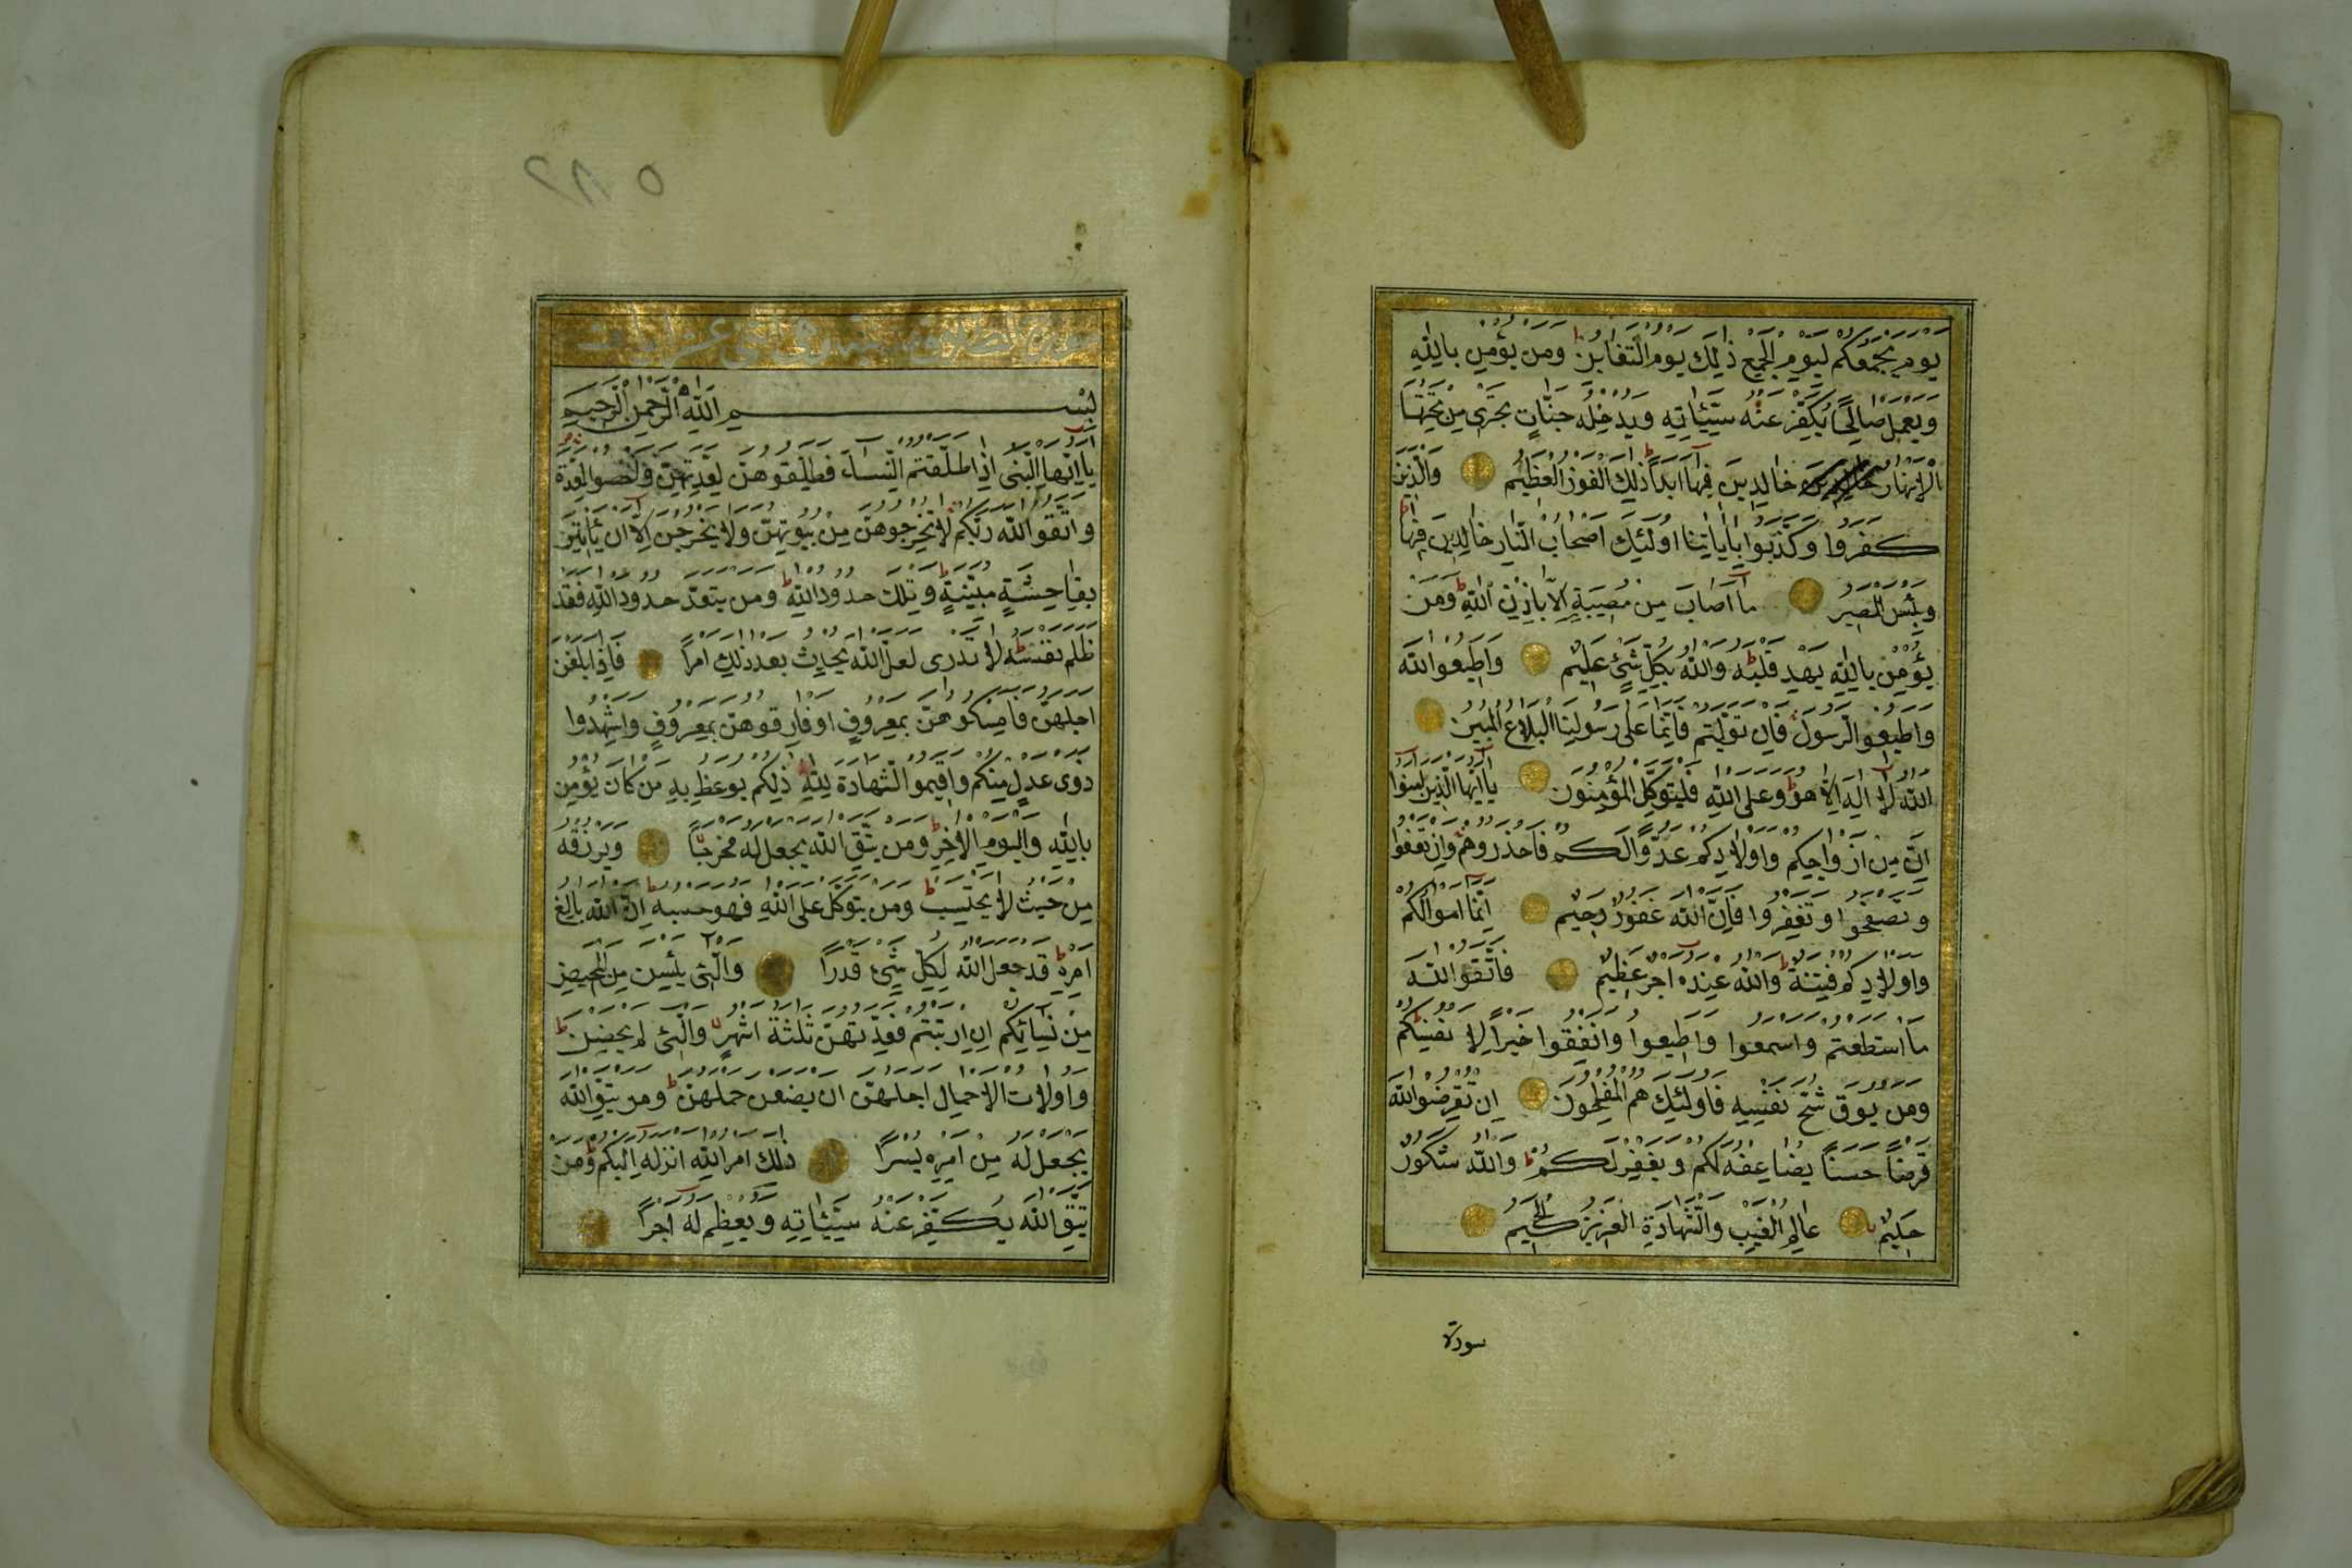 يوم يجمعكم ليوم الجمع ذلك يوم التغابن ط ومن يؤمن بالله
ويعمل صالحا يكفر عنه سيئاته ويدخله جنات تجرى من تحتها
الانهار خالدين فيها ابدا ط ذلك الفوز العظيم والذين
كفروا وكذبوا باياتنا اولئك اصحاب النار خالدين فيها ط
وبئس المصير ما اصاب من مصيبة الا باذن الله ط ومن
يؤمن بالله يهد قلبه ط والله بكل شئ عليم واطيعوا الله
واطيعوا الرسول فان توليتم فانما على رسولنا البلاغ المبين
الله لا اله الا هو ط وعلى الله فليتوكل المؤمنون يا ايها الذين امنوا
ان من ازواجكم واولادكم عدوا لكم فاحذروهم وان تعفوا
وتصفحوا وتغفروا فان الله غفور رحيم انما اموالكم
واولادكم فتنة ط والله عنده اجر عظيم فاتقوا الله
ما استطعتم واسمعوا واطيعوا وانفقوا خيرا لانفسكم ط
ومن يوق شح نفسه فاولئك هم المفلحون ان تقرضوا الله
قرضا حسنا يضاعفه لكم ويغفر لكم ط والله شكور
حليم عالم الغيب والشهادة العزيز الحكيم
سورة
٥٨٢
سورة الطلاق
بسم الله الرحمن الرحيم
يا ايها النبى اذا طلقتم النساء فطلقوهن لعدتهن واحصوا العدة
واتقوا الله ربكم لا تخرجوهن من بيوتهن ولا يخرجن الا ان ياتين
بفاحشة مبينة ط وتلك حدود الله ط ومن يتعد حدود الله فقد
ظلم نفسه ط لا تدرى لعل الله يحدث بعد ذلك امرا فاذا بلغن
اجلهن فامسكوهن بمعروف او فارقوهن بمعروف واشهدوا
ذوى عدل منكم واقيموا الشهادة لله ذلكم يوعظ به من كان يؤمن
بالله واليوم الاخر ط ومن يتق الله يجعل له مخرجا ويرزقه
من حيث لا يحتسب ط ومن يتوكل على الله فهو حسبه ط ان الله بالغ
امره ط قد جعل الله لكل شئ قدرا والئى يئسن من المحيض
من نسائكم ان ارتبتم فعدتهن ثلثة اشهر والئى لم يحضن ط
واولات الاحمال اجلهن ان يضعن حملهن ط ومن يتق الله
يجعل له من امره يسرا ذلك امر الله انزله اليكم ط ومن
يتق الله يكفر عنه سيئاته ويعظم له اجرا